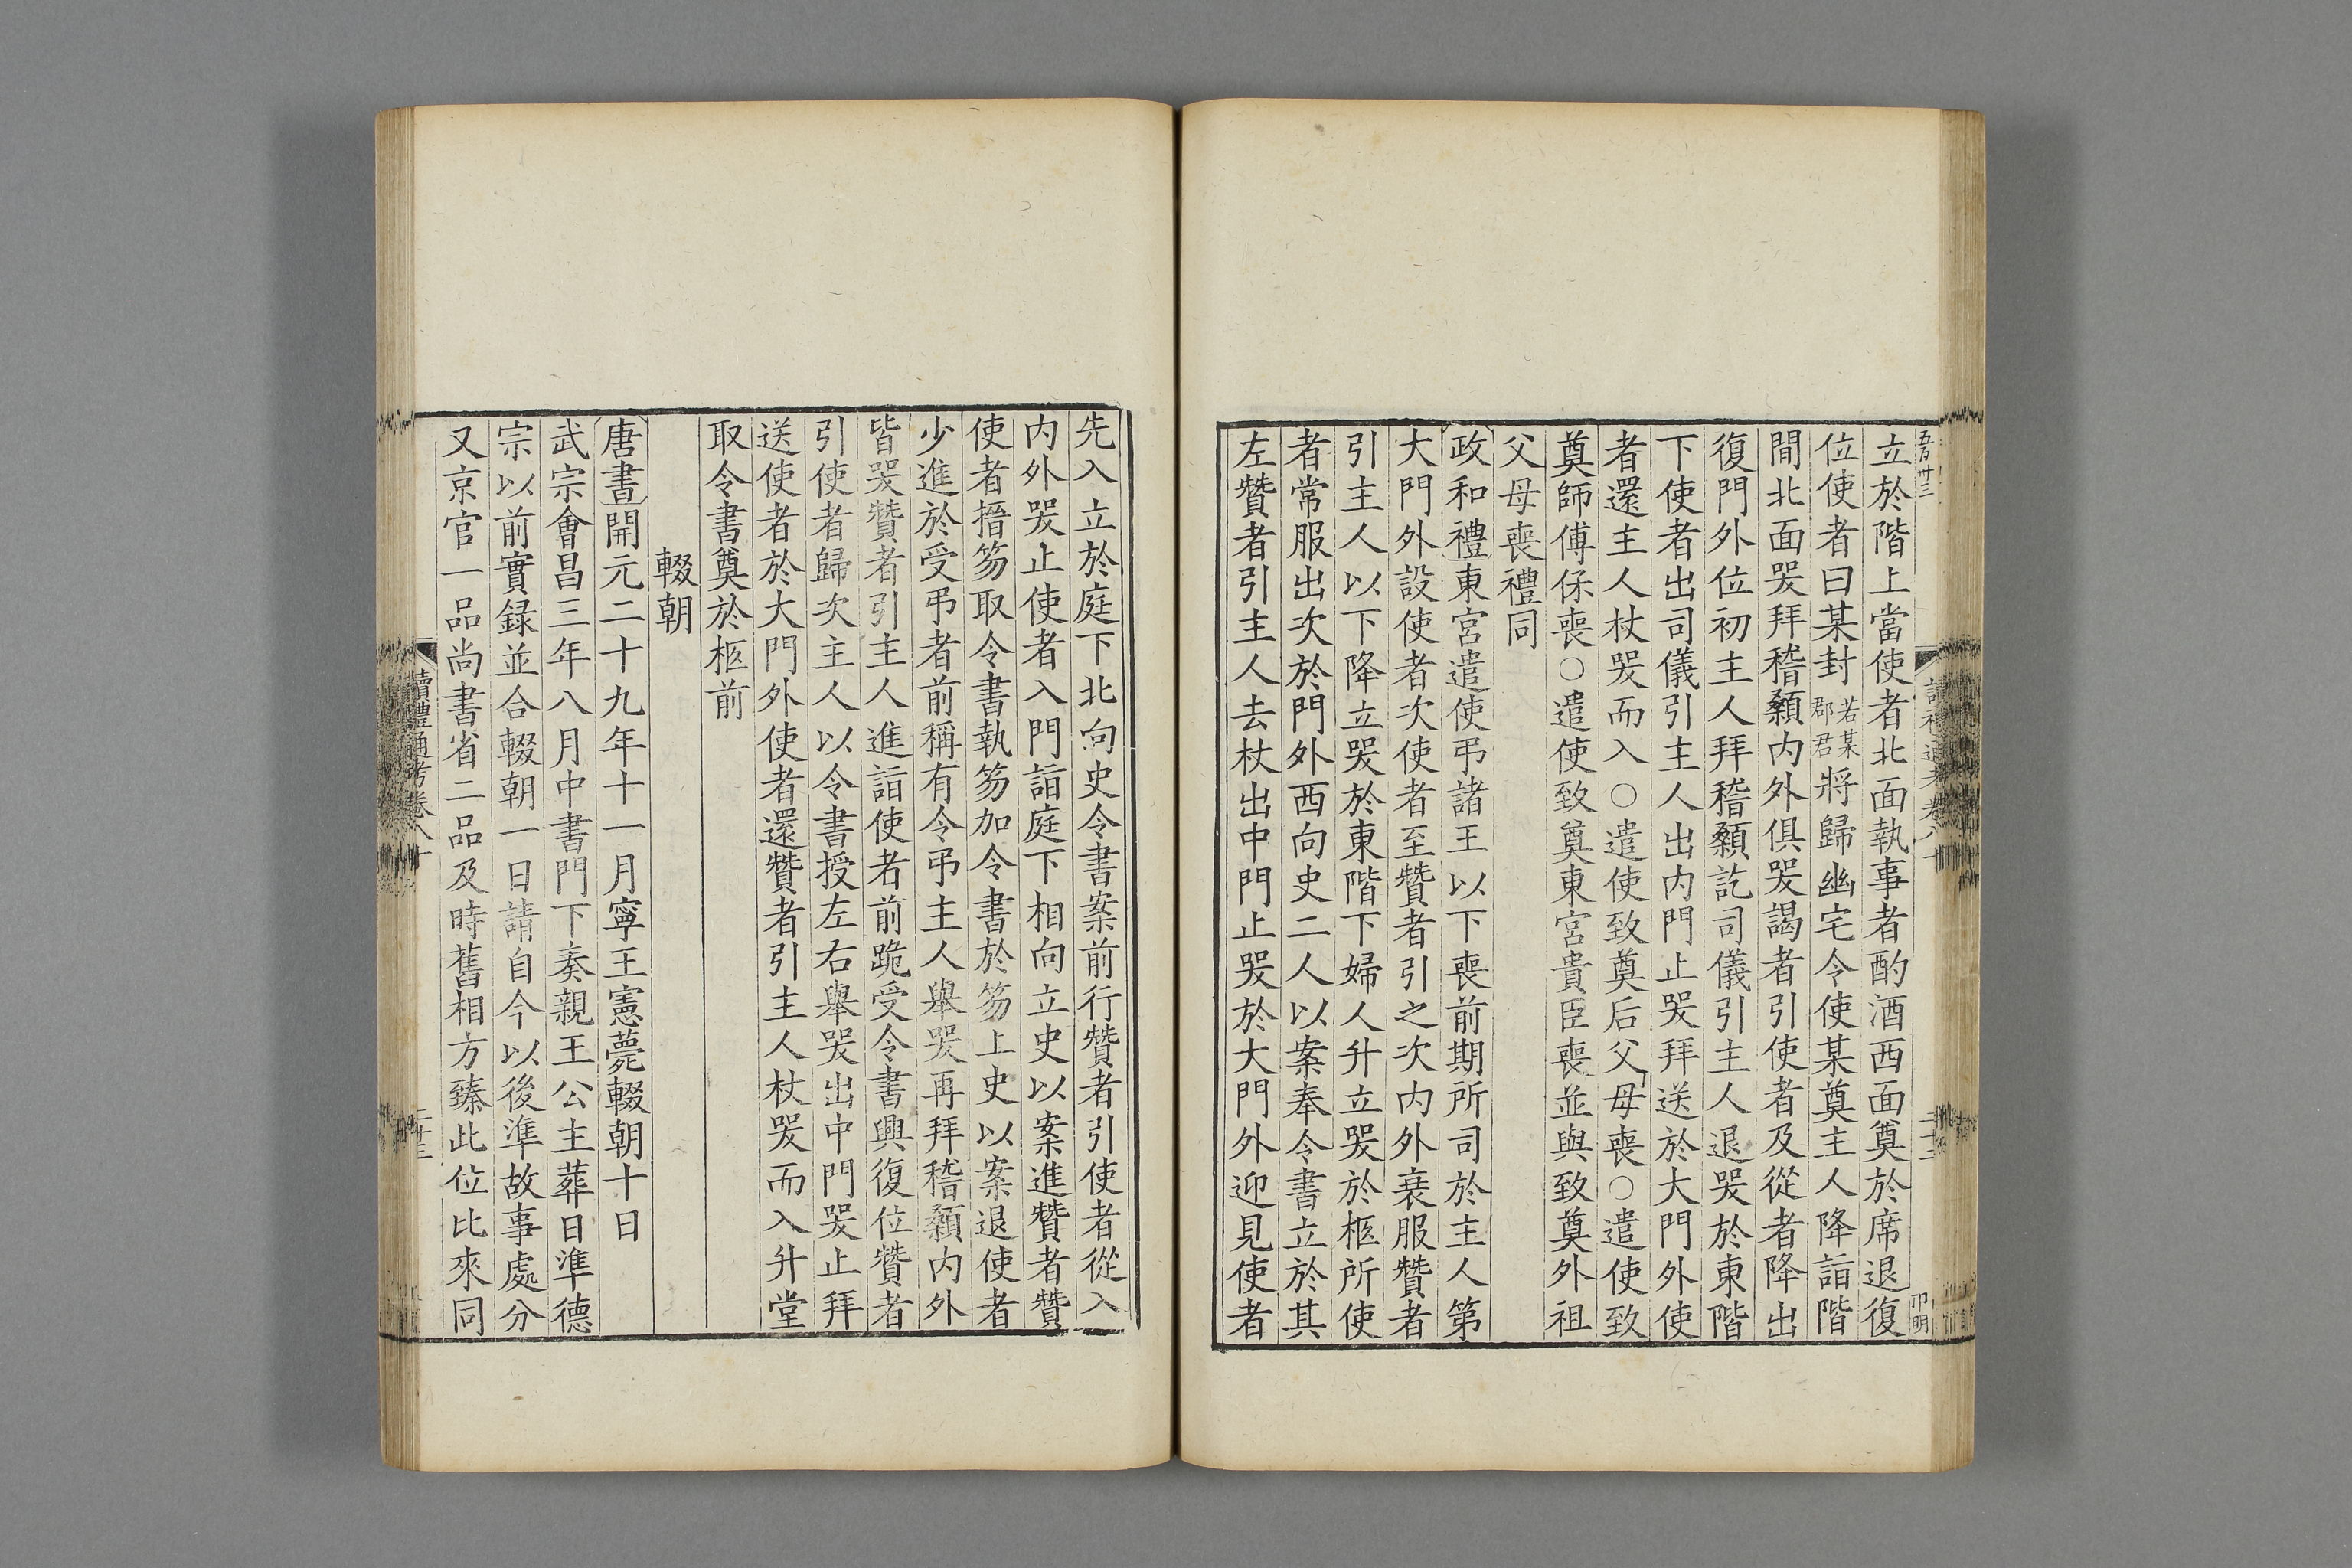 立於階上當使者北面執事者酌酒西面奠於席退復
位使者曰某封若某郡君將歸幽宅令使某奠主人降詣階
間北面哭拜稽顙內外俱哭謁者引使者及從者降出
復門外位初主人拜稽顙訖司儀引主人退哭於東階
下使者出司儀引主人出內門止哭拜送於大門外使
者還主人杖哭而入○遣使致奠后父母喪○遣使致
奠師傅保喪○遣使致奠東宮貴臣喪並與致奠外祖
父母喪禮同
政和禮東宮遣使弔諸王以下喪前期所司於主人第
大門外設使者次使者至贊者引之次內外衰服贊者
引主人以下降立哭於東階下婦人升立哭於柩所使
者常服出次於門外西向史二人以案奉令書立於其
左贊者引主人去杖出中門止哭於大門外迎見使者
先入立於庭下北向史令書案前行贊者引使者從入
內外哭止使者入門詣庭下相向立史以案進贊者贊
使者搢笏取令書執笏加令書於笏上史以案退使者
少進於受弔者前稱有令弔主人舉哭再拜稽顙內外
皆哭贊者引主人進詣使者前跪受令書興復位贊者
引使者歸次主人以令書授左右舉哭出中門哭止拜
送使者於大門外使者還贊者引主人杖哭而入升堂
取令書奠於柩前
輟朝
唐書開元二十九年十一月寧王憲薨輟朝十日
武宗會昌三年八月中書門下奏親王公主葬日準德
宗以前實録並合輟朝一日請自今以後準故事處分
又京官一品尚書省二品及時舊相方臻此位比來同
讀禮通考卷八十
二十三